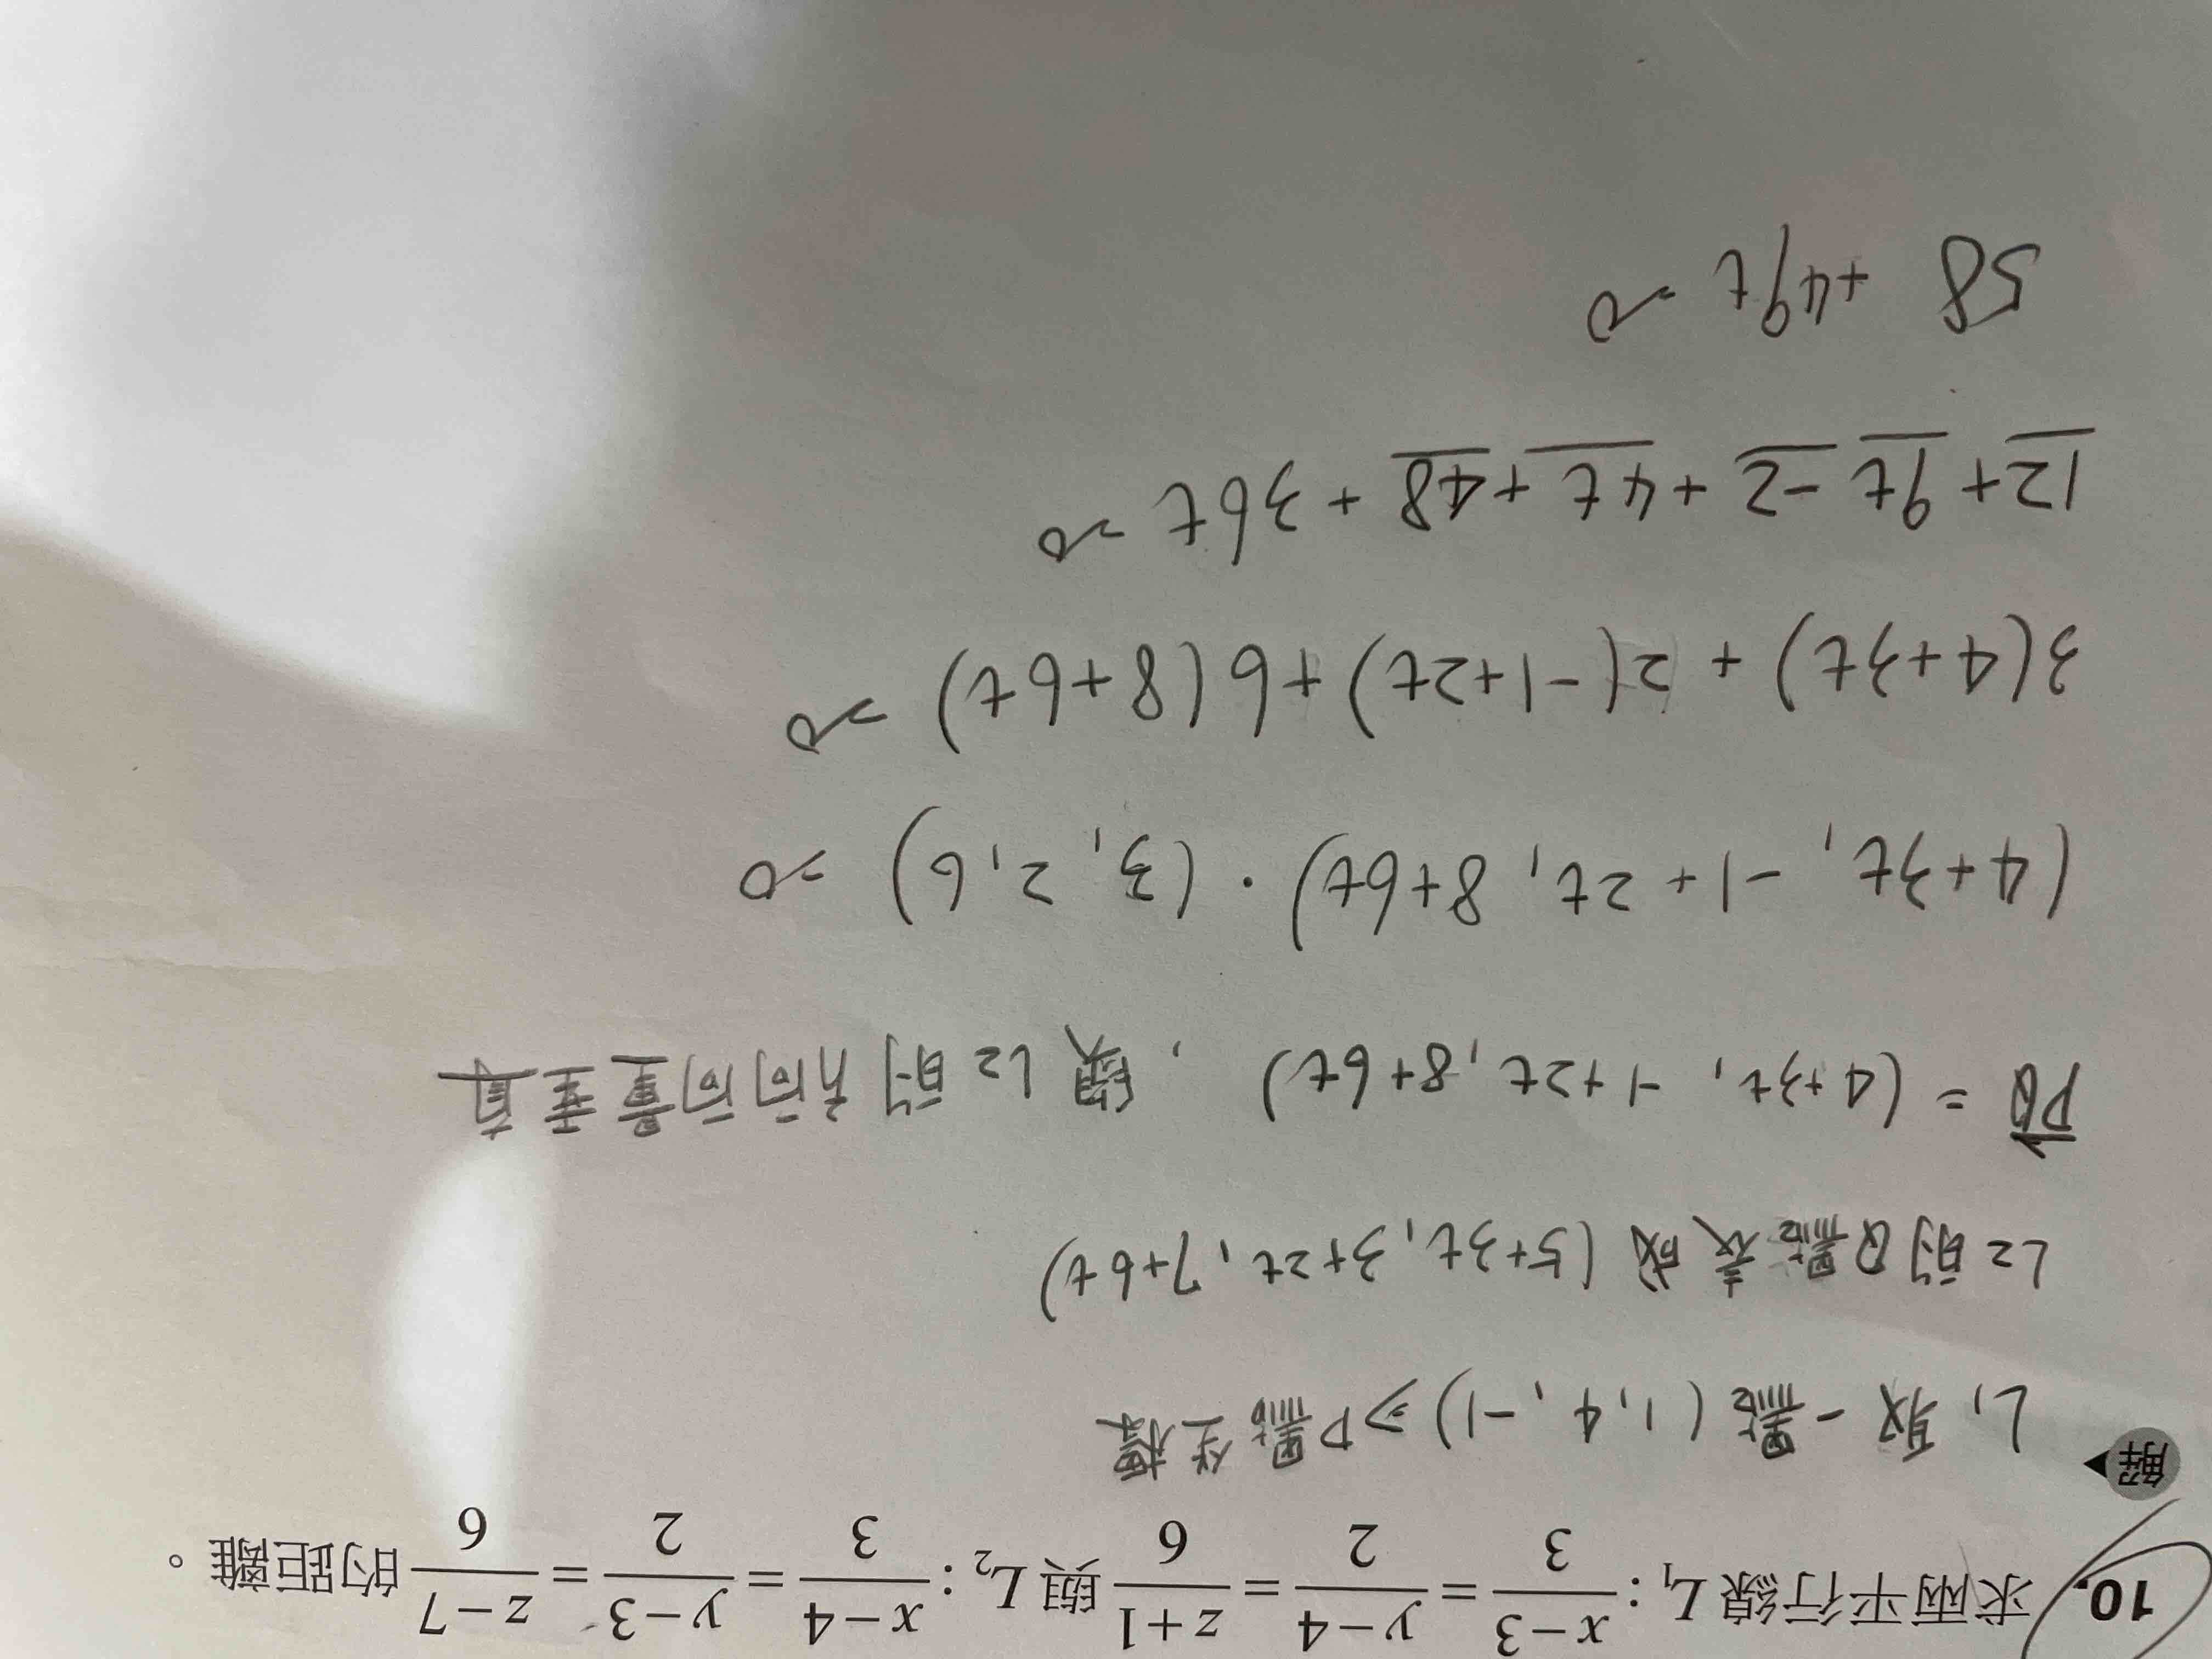 10. 求兩平行線 L₁：(x−3)/3 = (y−4)/2 = (z+1)/6 與 L₂：(x−4)/3 = (y−3)/2 = (z−7)/6 的距離。
解▶
L₁ 取一點 (1, 4, -1) ⇒ P點坐標
L2 的 Q點表成 (5+3t, 3+2t, 7+6t)
PQ⃗ = (4+3t, -1+2t, 8+6t) , 與 L2 的方向向量垂直
(4+3t, -1+2t, 8+6t) · (3, 2, 6) =0
3(4+3t) + 2(-1+2t) + 6(8+6t) =0
12+9t-2+4t+48+36t =0
58 +49t =0